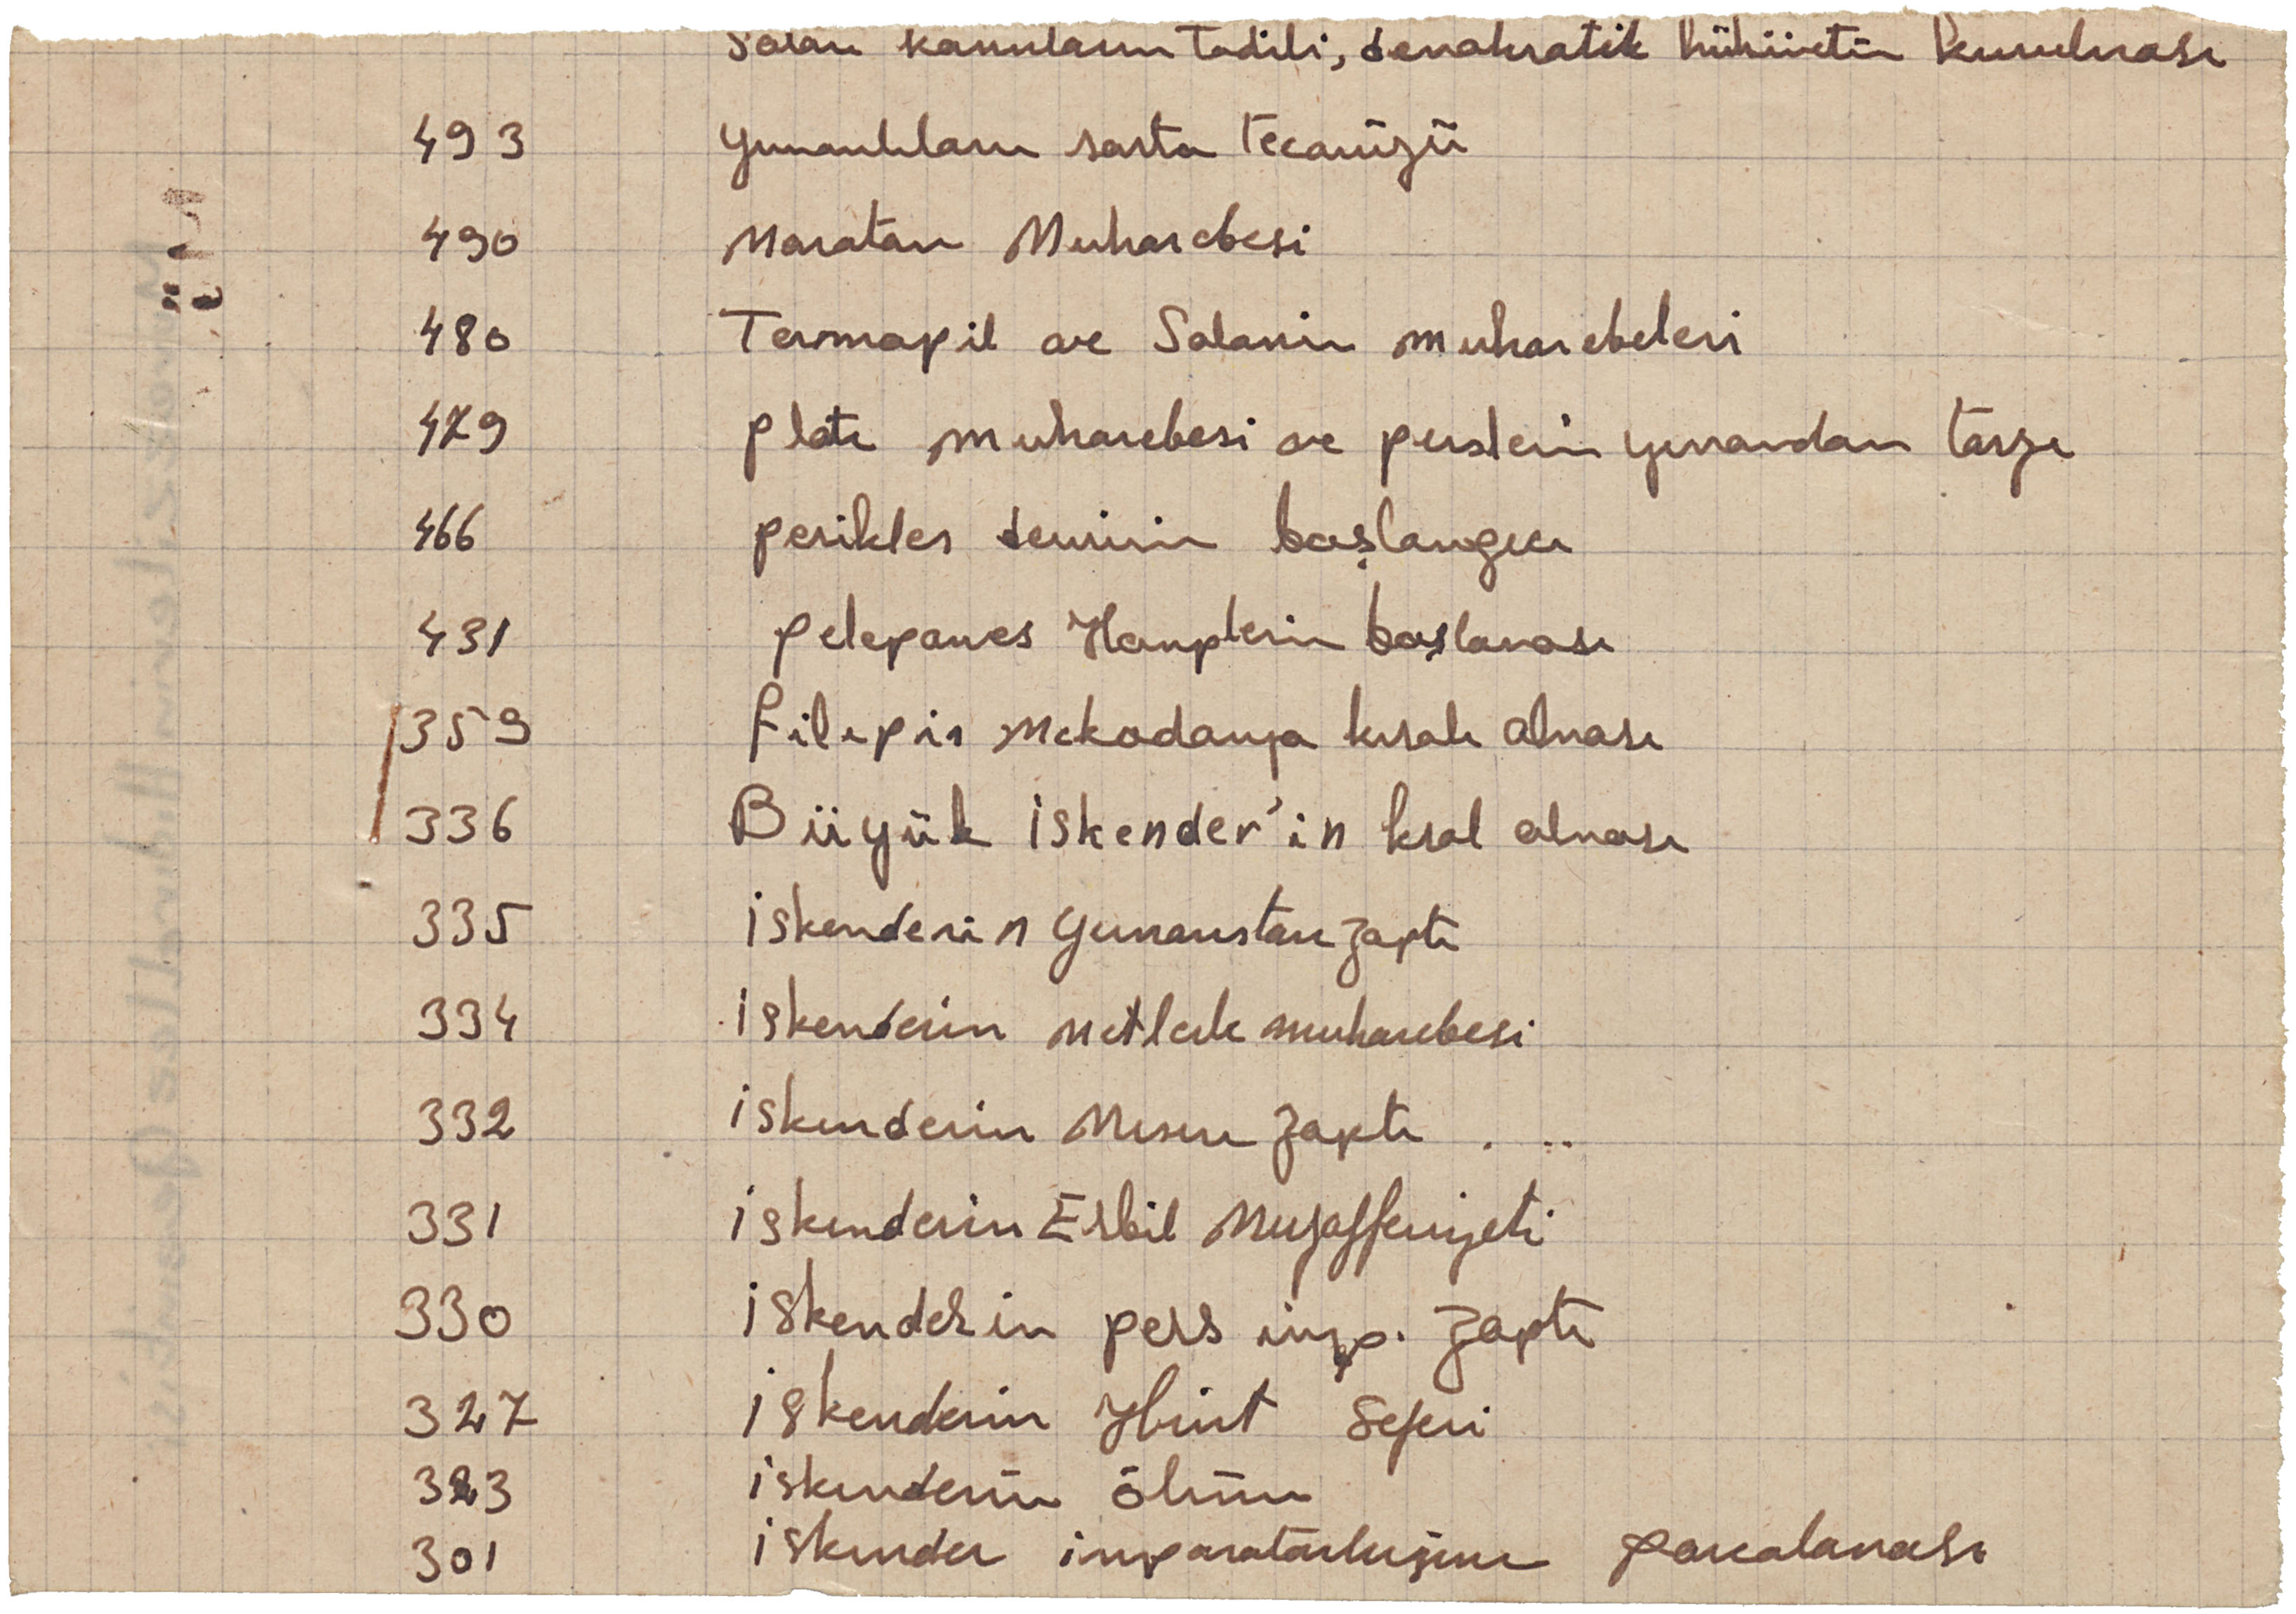 Solon kanunların tadili, demokratik hükümetin kurulması
493 Yunanlıların sarta tecavüzü
490 Maraton Muharebesi
480 Termopil ve Salamin muharebeleri
479 plate muharebesi ve perslerin yunandan tarzı
466 perikles devrinin başlangıcı
431 pelepones Harplerin başlaması
359 filipin Mekodanya kıralı olması
336 Büyük İskender'in kral olması
335 iskenderin Yunanıstanı zaptı
334 iskenderin muharebesi
332 iskenderin Mısırı zaptı . ..
331 iskenderin Erbil Muzafferiyeti
330 iskenderin pers imp. zaptı
327 iskenderin Hint Seferi
323 iskenderin ölümü
301 iskender imparatorluğunu parcalanası